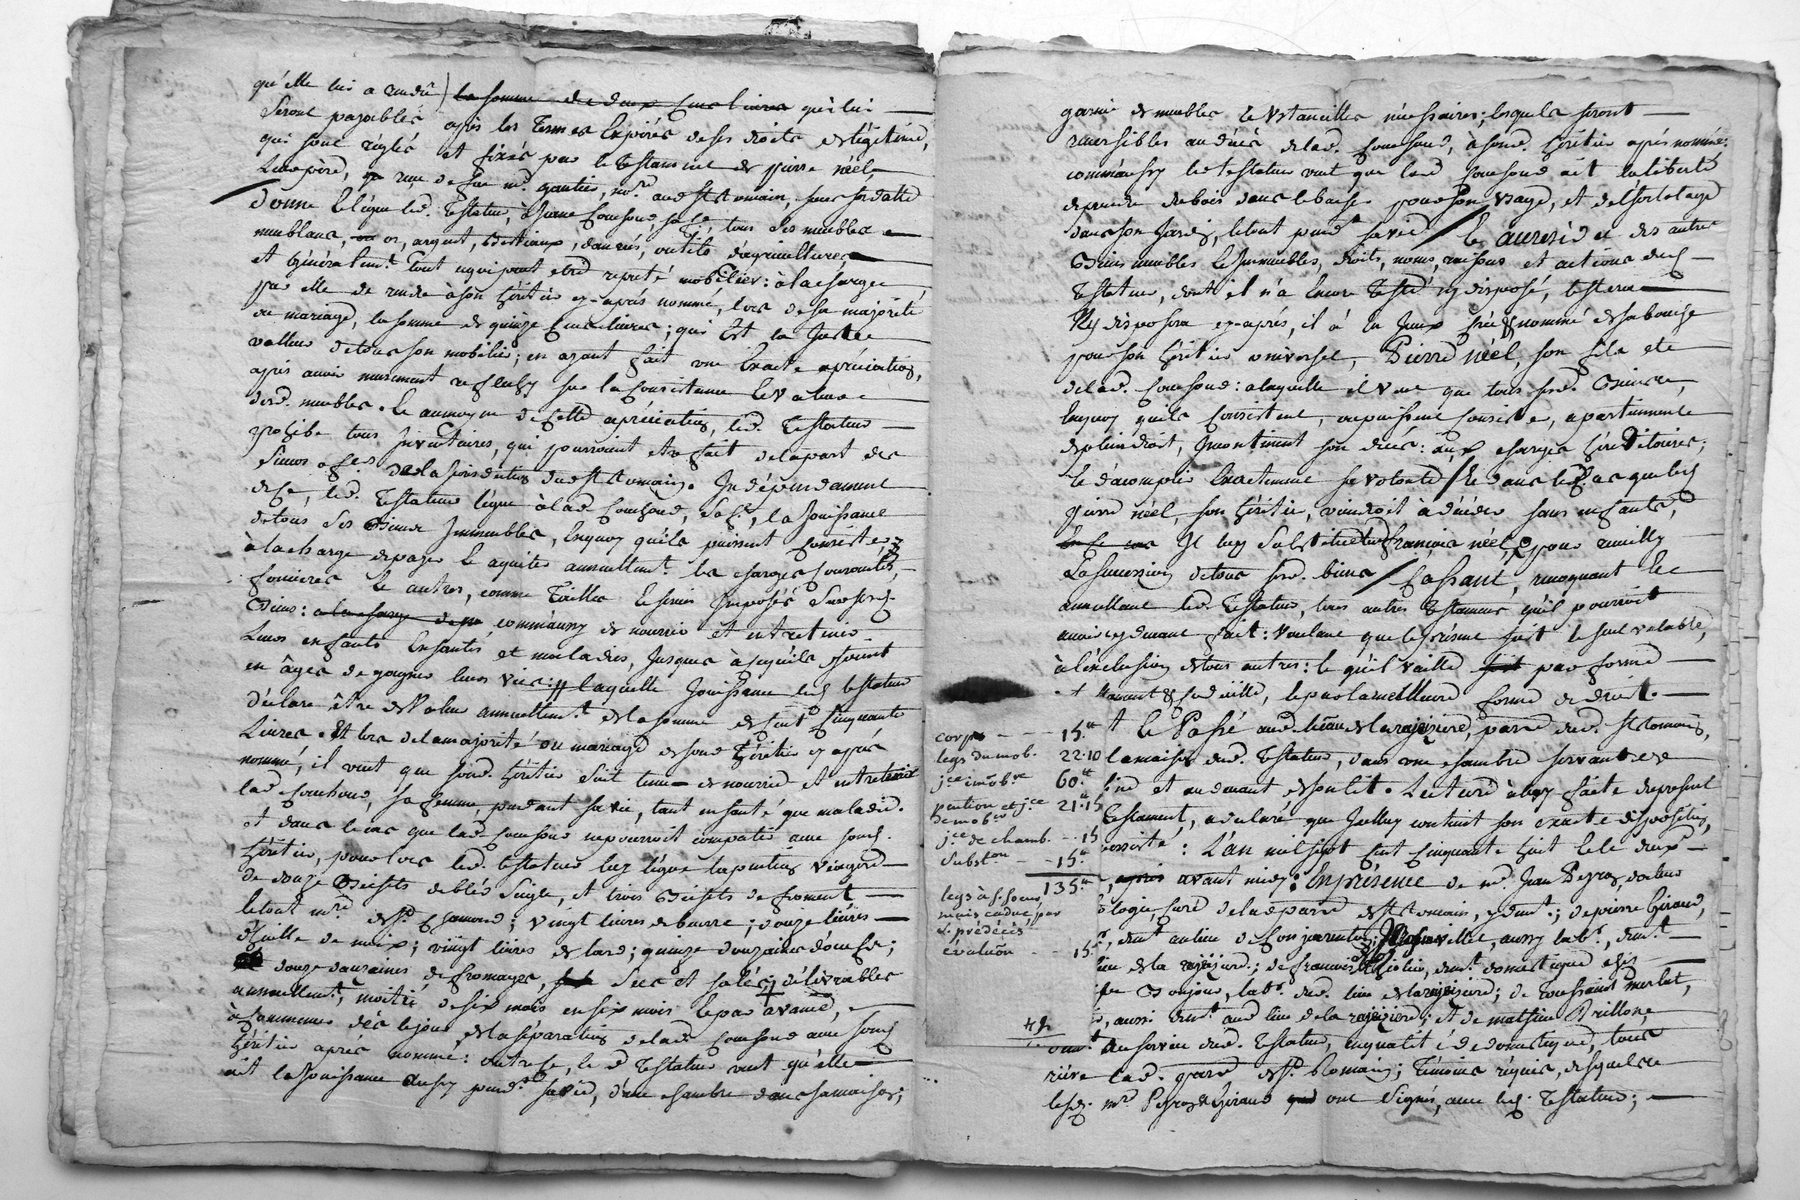 qu'elle lui a rendu) la somme de deux cens livres qu'i lui
seront payables après les termes expirés de ses droits de légitime,
qui sont réglés et fixés par le testament de pierre néel,
Leur père, reçu de feu me. gautier, no.re aud. St Romain, sous sa datte
donne & lègue led. testateur, à Jeanne fouchoud, sa fe, tous ses meubles
meublans, or, argent, bestiaux, danrées, outils d'agricultures
et généralem.t tout ce qui peut être reputé mobilier: à la charge
par elle de rendre à son héritier cy-après nommé, lors de sa majorité
ou mariage, la somme de quinze cens livres; qui Est la juste
valleur de tous son mobilier; en ayant fait une Exacte apréciation,
après avoir murement refléchy sur la consistance & valeur
desd. meubles. Et au moyen de cette apréciation, led. testateur
prohibe tous Inventaires, qui pourroient être fait de la part des
sieurs offes de la jurisdiction dud. St Romain. Indépendament
de ce, led. testateur lègue à lad. fouchoud, sa fe, la jouissance
de tous ses Biens Immeubles, En quoy qu'ils puissent consister,
à la charge de payer & aquiter annuellem.t les charges courantes,
foncières & autres, comme tailles & autres Imposés sur sesd.
Biens: a la charge de plus, comme aussy de nourrir et entretenir
Leurs enfants En santé et maladies, jusques à ce qu'ils soient
en âges de gagner leurs vies: laquelle jouissance led. testateur
déclare être de Valeur annuellem.t de la somme de cent cinquante
Livres. Et lors de la majorité ou mariage de sond. héritier cy après
nommé, il veut que sond. héritier soit tenu de nourrir et entretenir
lad. fouchoud, sa femme pendant sa vie, tant en santé que maladie.
et dans le cas que lad. fouchoud ne pourroit compatir avec sond.
héritier, pour lors led. testateur luy lègue la pention viagère
de douze Bichets de bled seigle, et trois Bichets de froment
le tout m.re de St Chamond; vingt livres de beurre; douze livres
d'huille de noix; vingt livres de lard; quinze douzaines d'oeufs;
douze douzaines de fromages, secs et salés; délivrables
annuellem.t, moitié de six mois en six mois & par avance,
à commencer dès le jour de la séparation de lad. fouchoud avec sond.
héritier après nommé: outre ce, led. testateur veut qu'elle
ait la jouissance aussy pend.t sa vie, d'une chambre dans sa maison;
garnie de meubles & Ustancilles nécessaires; lesquels seront
reversibles au décès de lad. fouchoud, à sond. héritier après nommé:
comme aussy led. testateur veut que lad. fouchoud ait la liberté
de prendre du bois dans le bucher pour son usage, et de l'hortolage
dans son jardin, le tout pend.t sa vie / Et au résidu des autres
Biens meubles & Immeubles, droits, noms, raisons et actions dud.
testateur, dont il n'a Encore testé ny disposé, teste ou
ny disposera cy-après, il a de sa bouche
pour son héritier universel, Pierre néel, son fils et de
de lad. fouchoud: à laquelle il veut que tous sesd. Biens,
En quoy qu'ils consistent, ou puissent consister, apartiennent
de plein droit, Incontinent son décès: aux charges héréditaires;
Et d'acomplir Exactement sa volonté / Et dans le cas que led.
pierre néel, son héritier, viendroit à décéder sans enfants,
en ce cas Il luy substitue françois néel, pour receuillir
La succession de tous sesd. biens / Cassant, révoquant Et
annullant led. testateur, tous autres testamens qu'il pourroit
avoir cy devant fait: voulant que le présent soit le seul valable,
à l'exclusion de tous autres: & qu'il vaille par forme
testament & codicille, & par la meilleure forme de droit.
Et Passé aud. lieu de la rajezière, parre dud. St Romain,
la maison dud. testateur, dans une chambre servant de
et au devant de son lit. Lecture à luy faite du présent
testament, a déclaré que Icelluy contient son exacte disposition,
L'an mil sept cent cinquante huit & le deux
après avant midy: En présence de me. Jean Peyron, docteur
logie, curé de la d. parre de St Romain, y dem.t; de pierre Giraud,
de la rajezière; de françois
Boujou, lab.r dud. lieu de la rajezière; de toussaint merlat,
aussi dem.t aud. lieu de la rajezière; et de mathieu Brillon
dem.t au service dud. testateur, en qualité de domestique, tous
rière lad. parre de St Romain; Témoins réquis, desquels
lesd. mrs Peyron & Giraud ont signés, avec led. testateur;
corps - - 15.tt
legs du mob. 22.10
jce imobre 60.tt
pention et jce
de mobre 21.15
jce de chamb. - - 15
subston - - 15.tt
135.tt
legs à f. soeur,
mais caduc, par
le prédécès
évaluon - - 15.